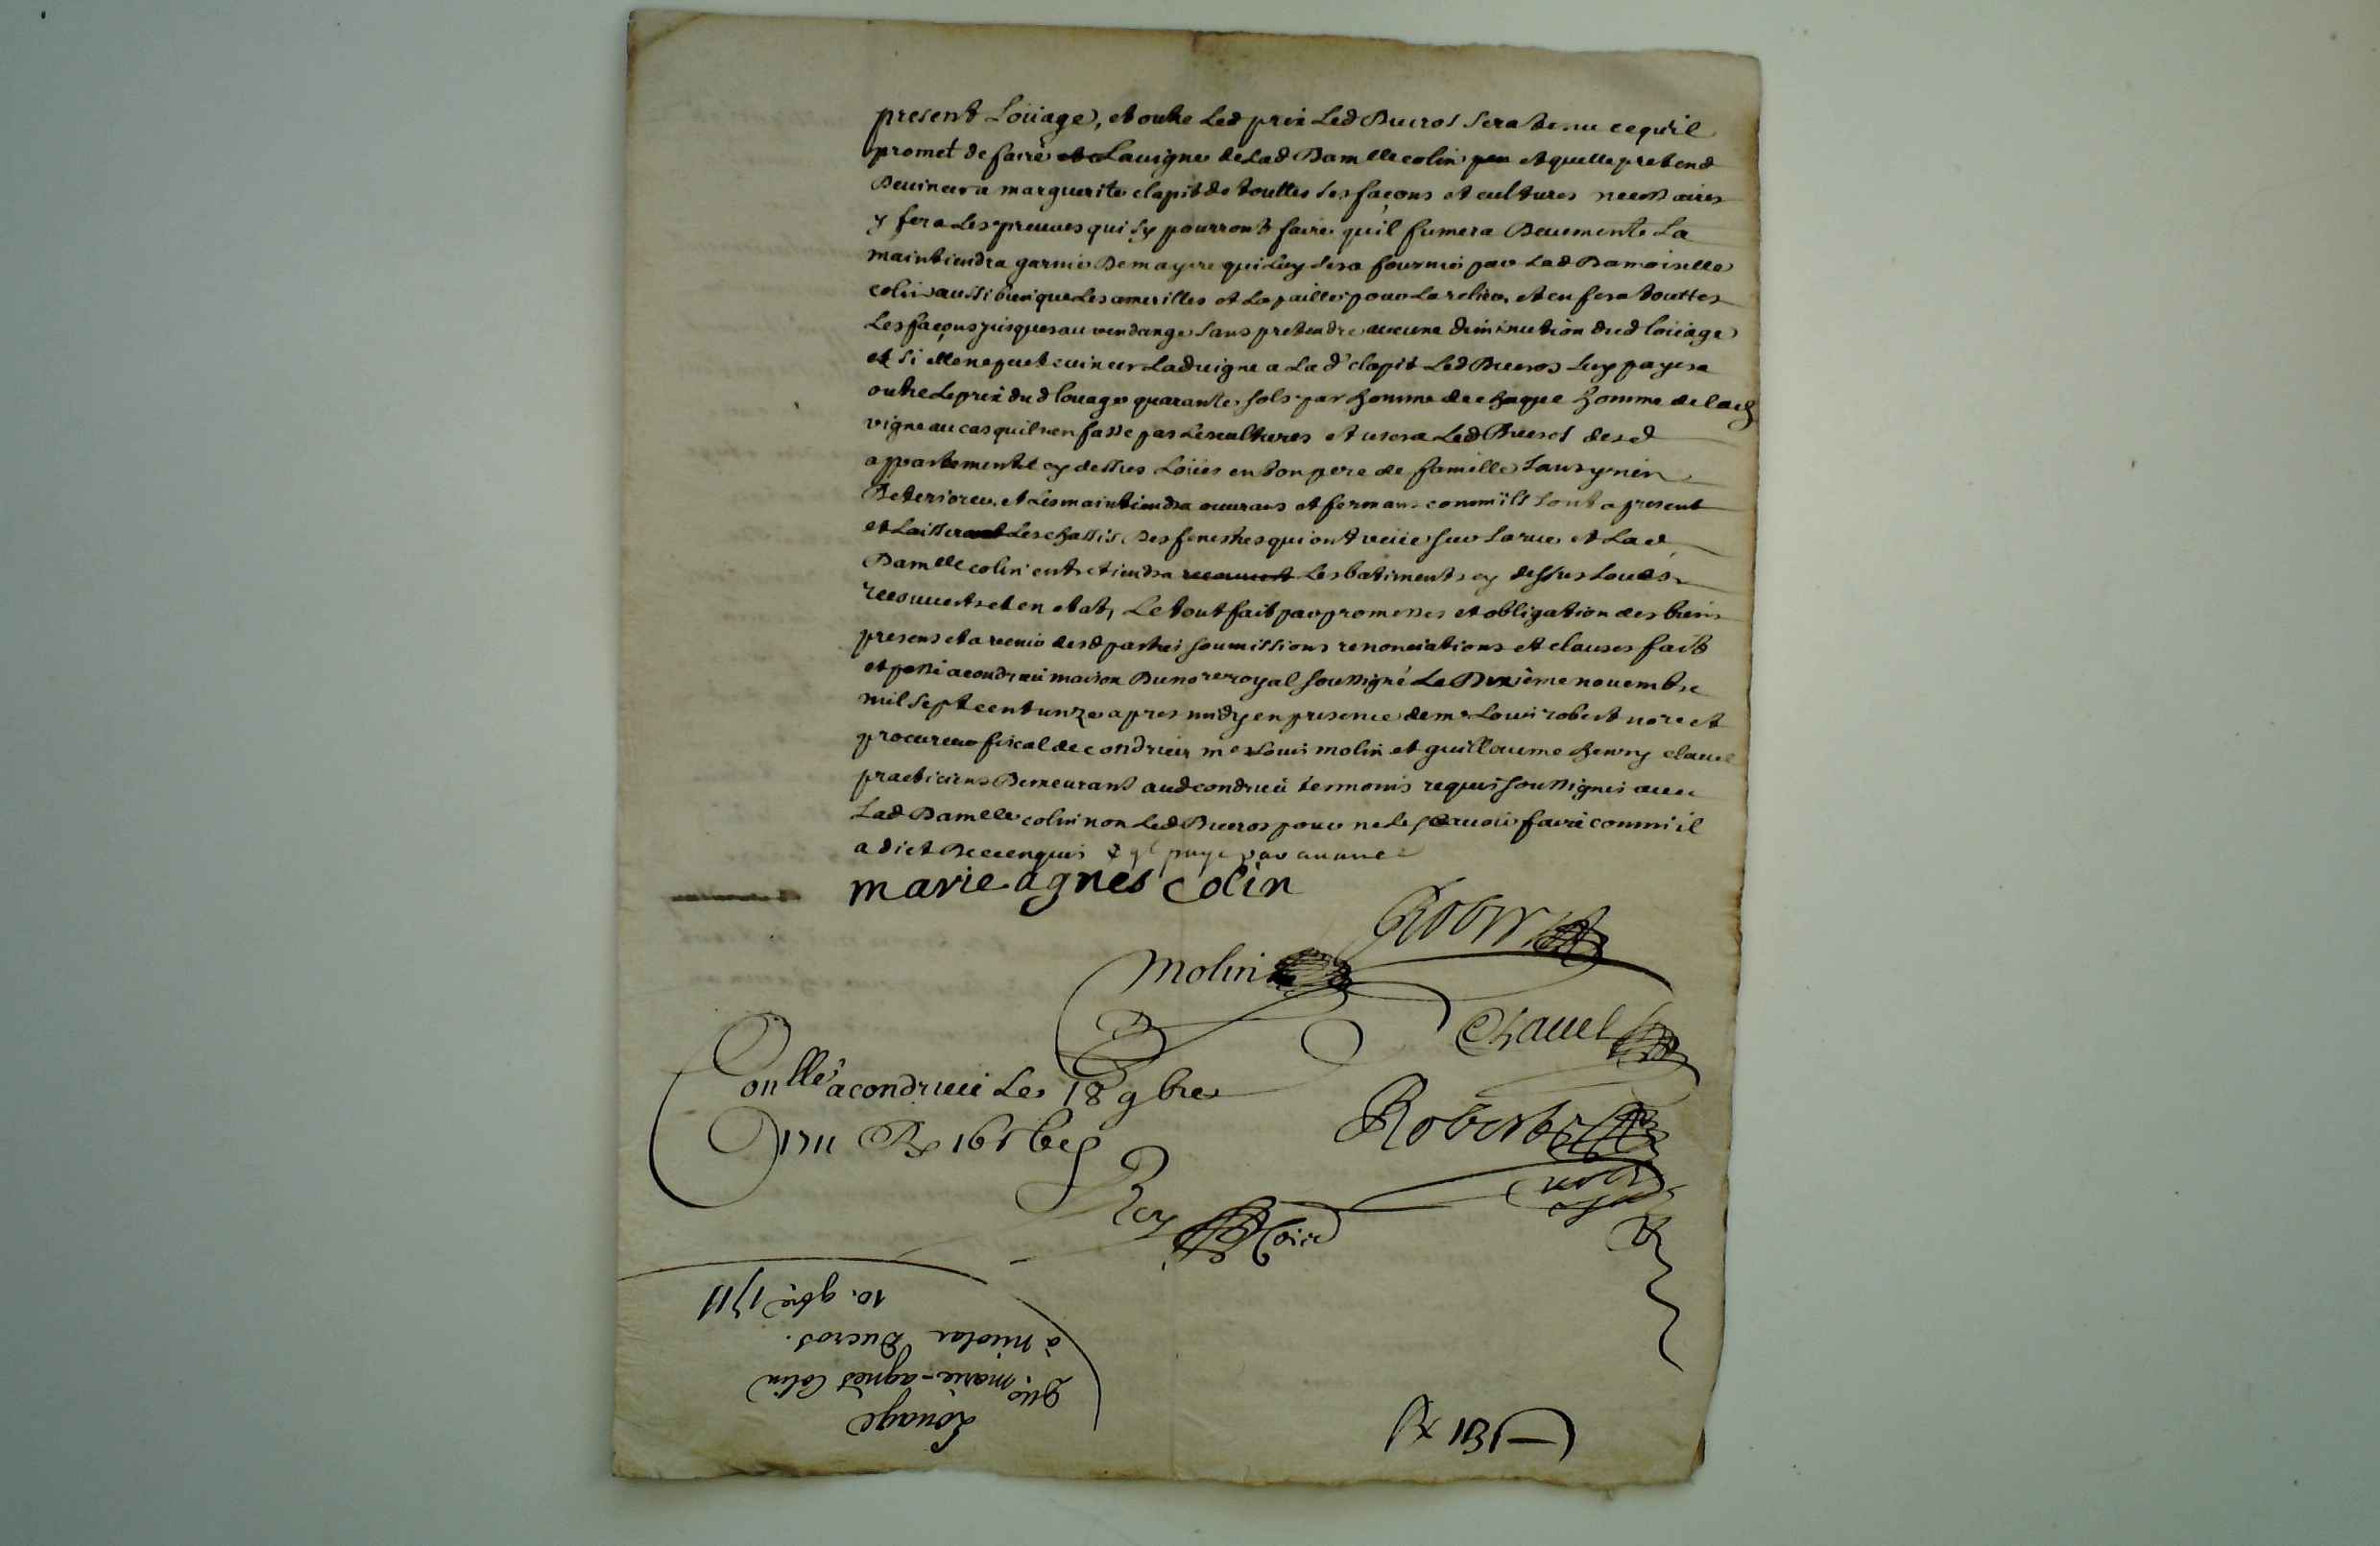 present Loüage, et outre Led prix Led Ducros sera tenu ce qu'il
promet de faire Lauigne de Lad Damlle colin et quelle pretend
Deuincer a marguerite clapit de touttes ses façons et cultures necessaires
y fera Les preuues qui sy pourront faire quil fumera Deuemente La
maintiendra garnie De mayere qui Luy sera fournie par Lad Damoiselle
colin aussi bien que Les amerilles et La paille pour La relier, et en fera touttes
Les façons jusques au vendange sans pretendre aucune diminution dud loüage
et si elle ne peut euincer Lad vigne a Lad clapit Led Ducros Luy payera
outre Le prix dud louage quarante sols par homme de chaque homme de lad
vigne au cas quil n'en fasse pas Les cultures et usera Led Ducros desd
appartements cy dessus Loüés en bon pere de famille sans y rien
Deteriorer, et Les maintiendra ouurans et fermans comm'ils sont a present
et Laissera Les chassis Des fenestres qui ont veüe sur La rue et Lad
Damlle colin entretiendra Les batiments cy dessus Loués
recouuerts et en etat, Le tout fait par promesses et obligation des biens
presens et a venir desd parties soumissions renonciations et clauses fait
et passé a condrieü maison Du nore royal soussigné Le Dixième nouembre
mil sept cent unze apres midy en presence de me Louis robert nore et
procureur fiscal de condrieu me Louis molin et guillaume henry clauel
practiciens Demeurant aud condrieü temoins requis soussignés auec
Lad Damlle colin non Led Ducros pour ne Le sçauoir faire comm'il
a dict De ce enquis paye par auance
marie agnes colin
Robert
Molin
Chauel
Conllé a condrieu Le 18 9bre
1711 R
Robert
Roy
Loüage
Dlle marie-agnès Colin
à nicolas Ducros.
10. 9bre 1711